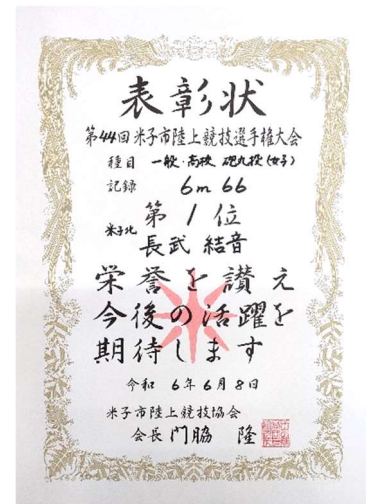 表彰状
第44回米子市陸上競技選手権大会
種目 一般・高校 砲丸投(女子)
記録 6m66
第1位
米子北
長武 結音
栄誉を讃え
今後の活躍を
期待します
令和 6年6月8日
米子市陸上競技協会
会長 門脇 隆